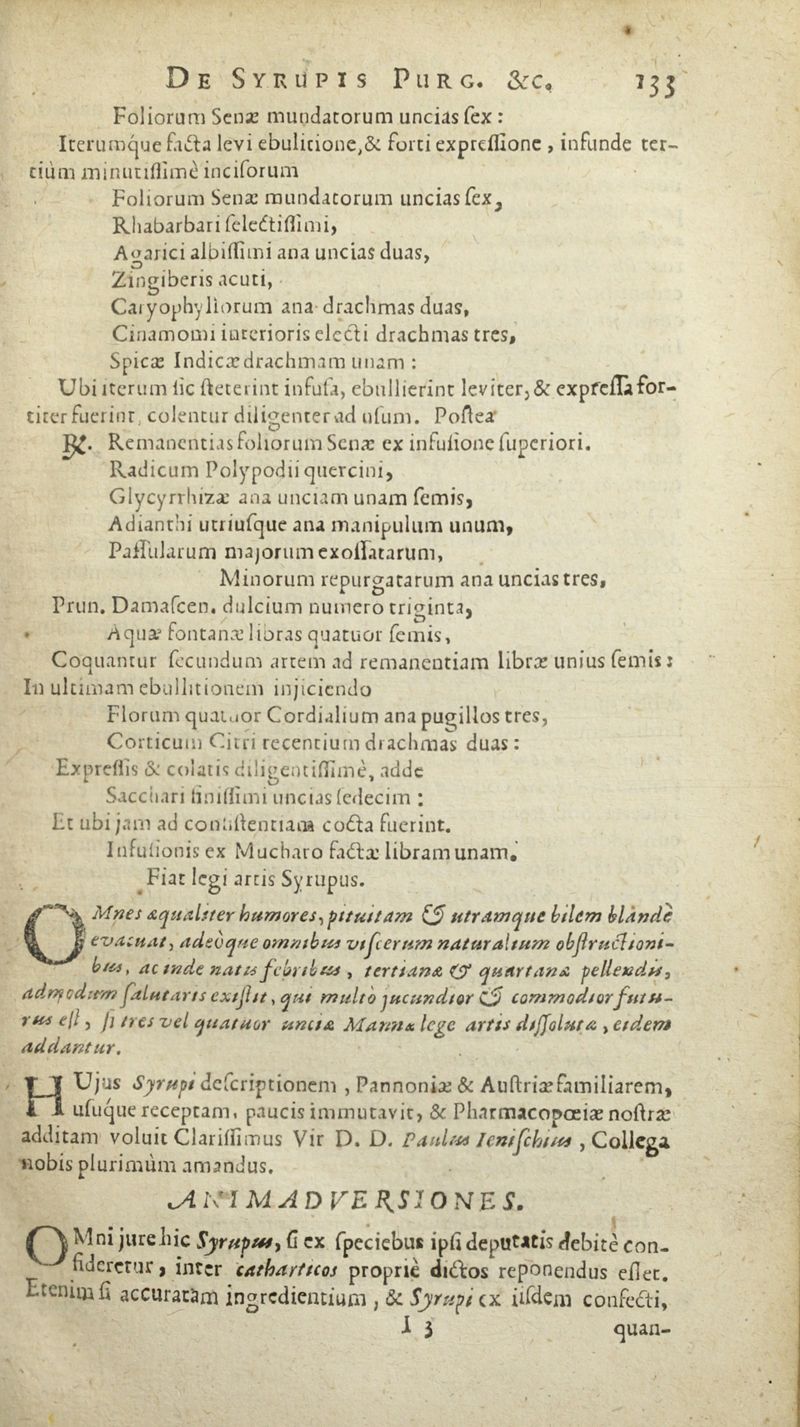 DE SYRUPIS PURG. &c. 133
Foliorum Senæ mundatorum uncias ſex :
Iterumque facta levi ebulitione,& forti expreſſione , infunde ter-
tiùm minutiſſimè inciſorum
Foliorum Senæ mundatorum uncias ſex,
Rhabarbari ſelectiſſimi,
Agarici albiſſimi ana uncias duas,
Zingiberis acuti,
Caryophyllorum ana drachmas duas,
Cinamomi interioris electi drachmas tres,
Spicæ Indicæ drachmam unam :
Ubi iterum ſic ſteterint infuſa, ebullierint leviter, & expreſſa for-
titer fuerint, colentur diligenter ad uſum. Poſtea
℞. Remanentias foliorum Senæ ex infuſione ſuperiori.
Radicum Polypodii quercini,
Glycyrrhizæ ana unciam unam ſemis,
Adianthi utriuſque ana manipulum unum,
Paſſularum majorum exoſſatarum,
Minorum repurgatarum ana uncias tres,
Prun. Damaſcen. dulcium numero triginta,
Aquæ fontanæ libras quatuor ſemis,
Coquantur ſecundum artem ad remanentiam libræ unius ſemis :
In ultimam ebullitionem injiciendo
Florum quatuor Cordialium ana pugillos tres,
Corticum Citri recentium drachmas duas :
Expreſſis & colatis diligentiſſimè, adde
Sacchari finiſſimi uncias ſedecim :
Et ubi jam ad conſiſtentiam cocta fuerint.
Infuſionis ex Mucharo factæ libram unam.
Fiat legi artis Syrupus.
OMnes æqualiter humores, pituitam & utramque bilem blandè
evacuat, adeòque omnibus viſcerum naturalium obſtructioni-
bus, ac inde natis febribus , tertianæ & quartanæ pellendis,
admodum ſalutaris exiſtit, qui multò jucundior & commodior futu-
rus eſt , ſi tres vel quatuor unciæ Mannæ lege artis diſſolutæ , eidem
addantur.
HUjus Syrupi deſcriptionem , Pannoniæ & Auſtriæ familiarem,
uſuque receptam, paucis immutavit, & Pharmacopœiæ noſtræ
additam voluit Clariſſimus Vir D. D. Paulus Ieniſchius , Collega
nobis plurimùm amandus.
ANIMADVERSIONES.
OMni jure hic Syrupus, ſi ex ſpeciebus ipſi deputatis debitè con-
ficeretur, inter catharticos propriè dictos reponendus eſſet.
Etenim ſi accuratam ingredientium , & Syrupi ex iiſdem confecti,
I 3 quan-